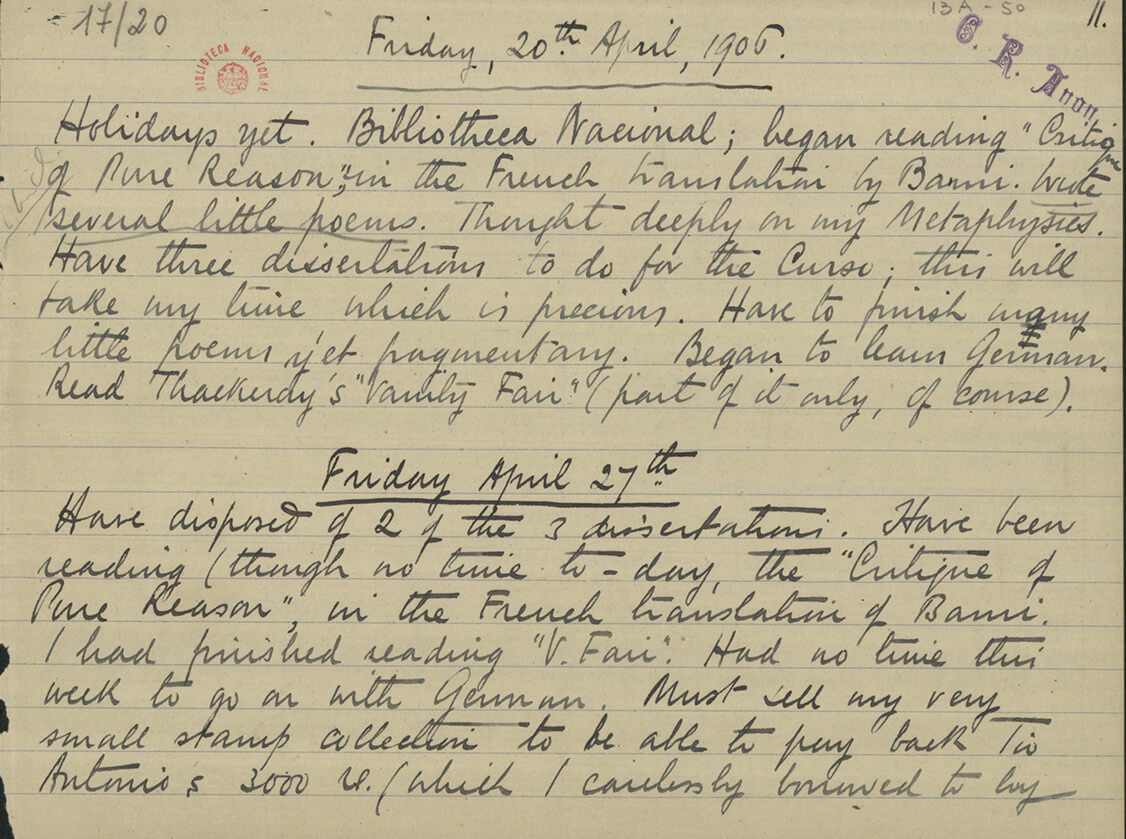 17/20
13A-50
11.
C. R. Anon
BIBLIOTECA NACIONAL
Friday, 20th April, 1906.
Holidays yet. Bibliotheca Nacional; began reading "Critique
of Pure Reason", in the French translation by Barni. Wrote
several little poems. Thought deeply on my Metaphysics.
Have three dissertations to do for the Curso; this will
take my time which is precious. Have to finish many
little poems yet fragmentary. Began to learn German.
Read Thackeray's "Vanity Fair" (part of it only, of course).
Friday April 27th
Have disposed of 2 of the 3 dissertations. Have been
reading (though no time to-day, the "Critique of
Pure Reason", in the French translation of Barni.
I had finished reading "V. Fair". Had no time this
week to go on with German. Must sell my very
small stamp collection to be able to pay back Tio
Antonio's 3000 rs. (which I carelessly borrowed to buy